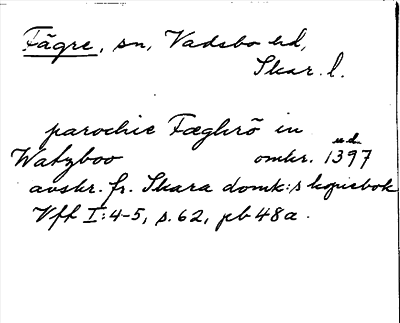 Fägre, sn, Vadsbo hd,
Skar. l.
parochie Fæghrö in
Watzboo omkr. 1397 u.d.
avskr. fr. Skara domk:s kopiebok
Vff I:4-5, s. 62, pb 48a.